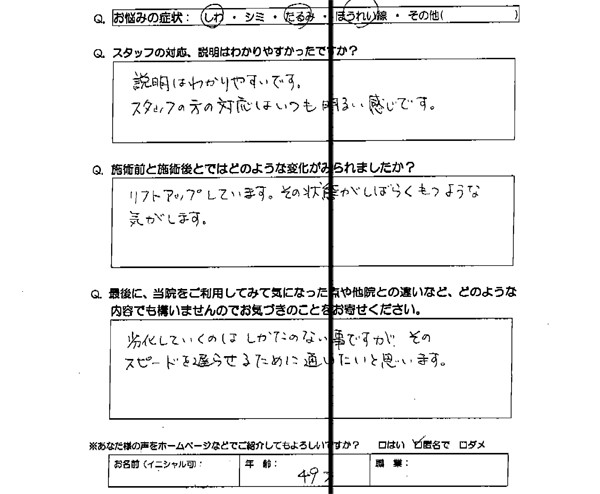 Q. お悩みの症状：しわ・シミ・たるみ・ほうれい線・その他(　　　　)
Q. スタッフの対応、説明はわかりやすかったですか？
説明はわかりやすいです。
スタッフの方の対応はいつも明るい感じです。
Q. 施術前と施術後とではどのような変化がみられましたか？
リフトアップしています。その状態がしばらくもつような
気がします。
Q. 最後に、当院をご利用してみて気になった点や他院との違いなど、どのような
内容でも構いませんのでお気づきのことをお寄せください。
劣化していくのは しかたのない事ですが、その
スピードを遅らせるために通いたいと思います。
※あなた様の声をホームページなどでご紹介してもよろしいですか？　□はい　☑匿名で　□ダメ
お名前（イニシャル可）：　年 齢：　49　職 業：